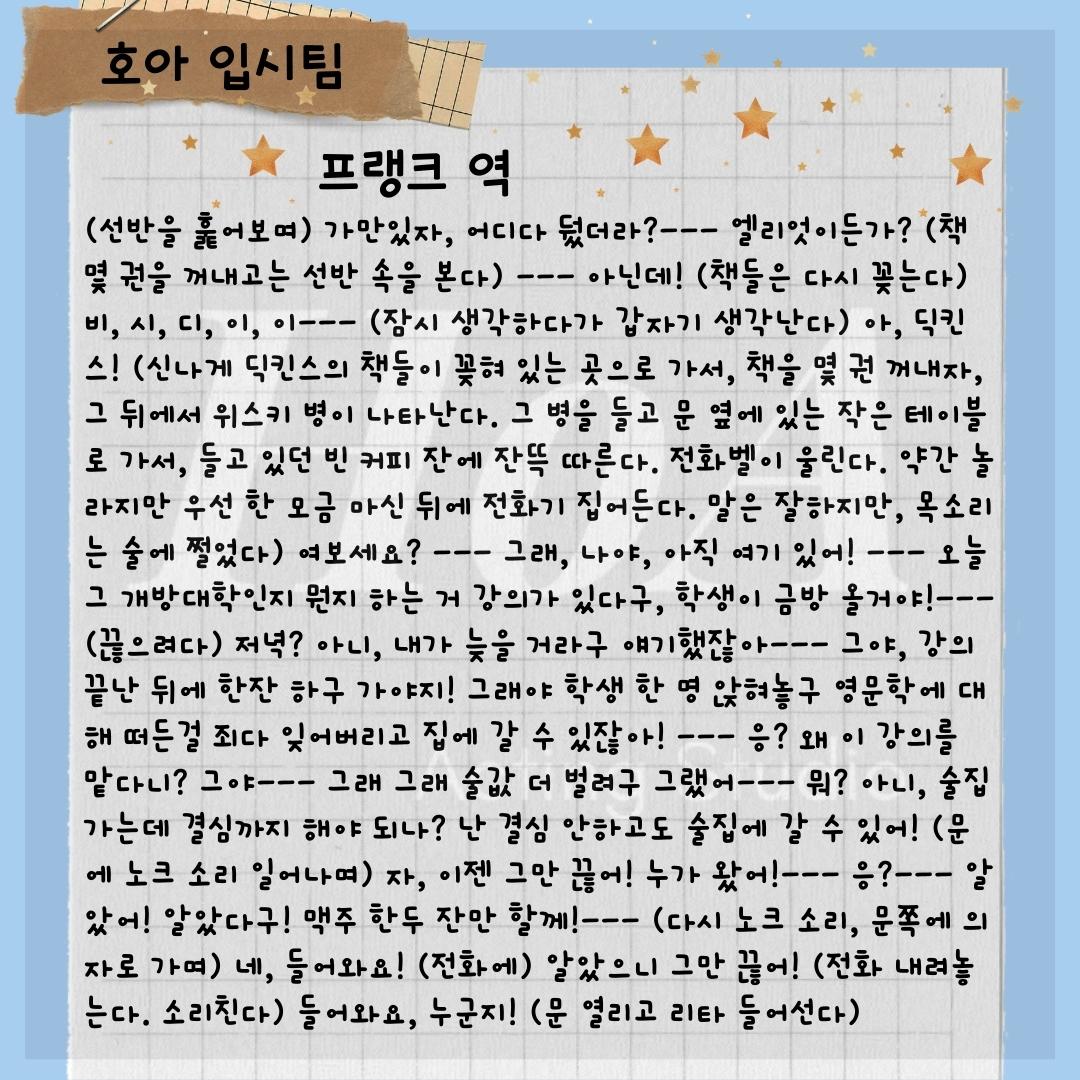 호아 입시팀
프랭크 역
(선반을 훑어보며) 가만있자, 어디다 뒀더라?--- 엘리엇이든가? (책
몇 권을 꺼내고는 선반 속을 본다) --- 아닌데! (책들은 다시 꽂는다)
비, 시, 디, 이, 이--- (잠시 생각하다가 갑자기 생각난다) 아, 딕킨
스! (신나게 딕킨스의 책들이 꽂혀 있는 곳으로 가서, 책을 몇 권 꺼내자,
그 뒤에서 위스키 병이 나타난다. 그 병을 들고 문 옆에 있는 작은 테이블
로 가서, 들고 있던 빈 커피 잔에 잔뜩 따른다. 전화벨이 울린다. 약간 놀
라지만 우선 한 모금 마신 뒤에 전화기 집어든다. 말은 잘하지만, 목소리
는 술에 쩔었다) 여보세요? --- 그래, 나야, 아직 여기 있어! --- 오늘
그 개방대학인지 뭔지 하는 거 강의가 있다구, 학생이 금방 올거야!---
(끊으려다) 저녁? 아니, 내가 늦을 거라구 얘기했잖아--- 그야, 강의
끝난 뒤에 한잔 하구 가야지! 그래야 학생 한 명 앉혀놓구 영문학에 대
해 떠든걸 죄다 잊어버리고 집에 갈 수 있잖아! --- 응? 왜 이 강의를
맡다니? 그야--- 그래 그래 술값 더 벌려구 그랬어--- 뭐? 아니, 술집
가는데 결심까지 해야 되나? 난 결심 안하고도 술집에 갈 수 있어! (문
에 노크 소리 일어나며) 자, 이젠 그만 끊어! 누가 왔어!--- 응?--- 알
았어! 알았다구! 맥주 한두 잔만 할께!--- (다시 노크 소리, 문쪽에 의
자로 가며) 네, 들어와요! (전화에) 알았으니 그만 끊어! (전화 내려놓
는다. 소리친다) 들어와요, 누군지! (문 열리고 리타 들어선다)
HoA
Acting Studio